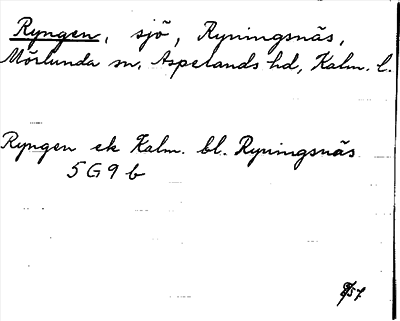 Ryngen, sjö, Ryningsnäs,
Mörlunda sn, Aspelands hd, Kalm. l.
Ryngen ek Kalm. bl. Ryningsnäs
5G9b